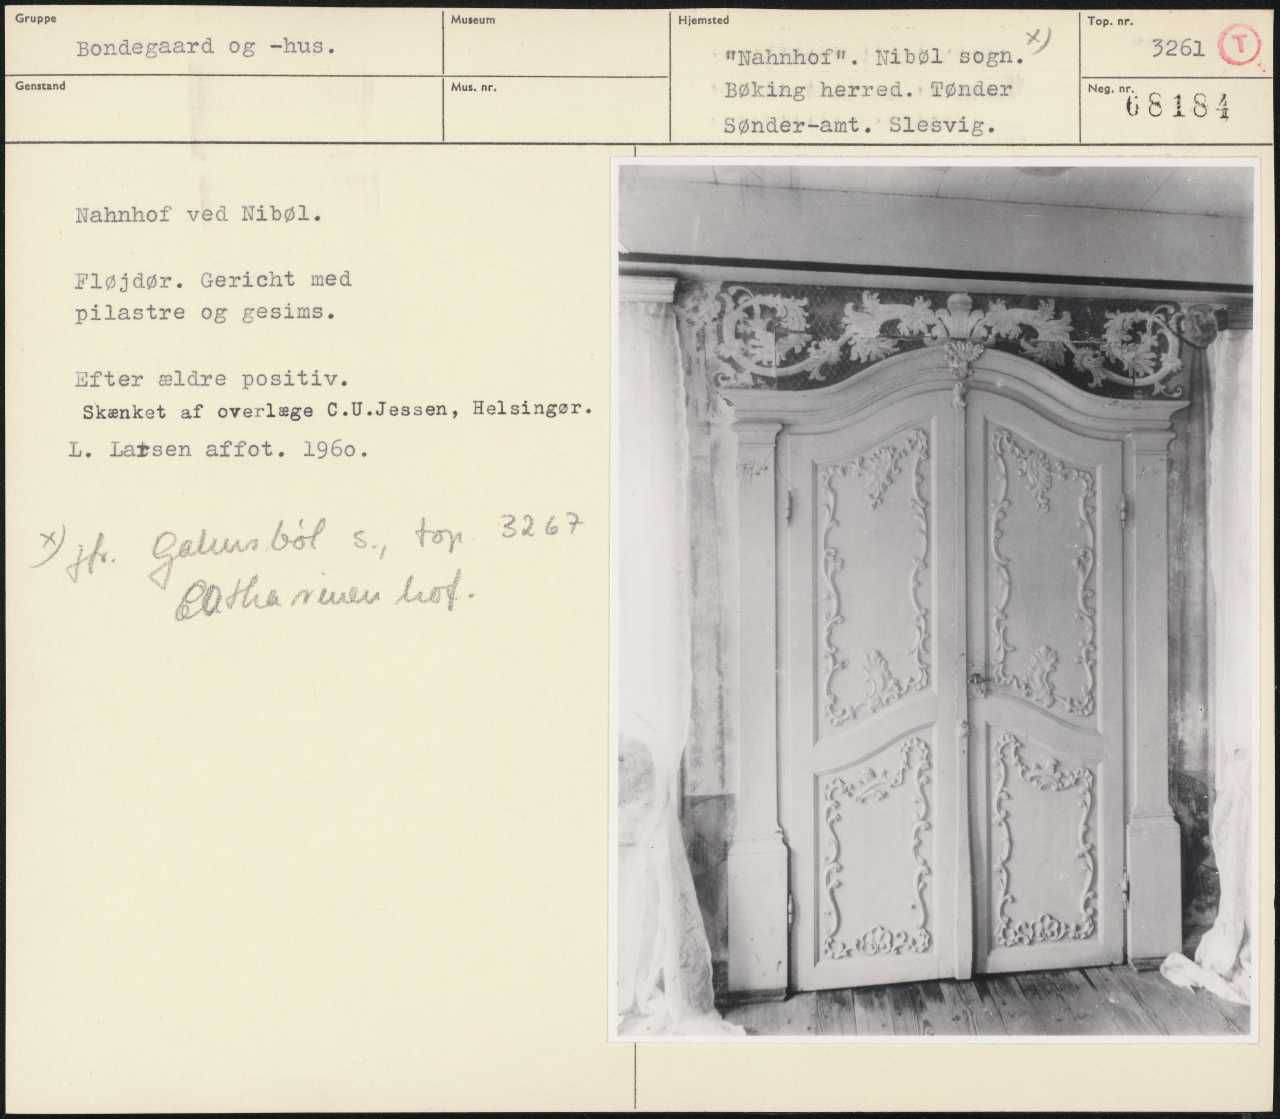 Gruppe
Bondegaard og -hus.
Museum
Hjemsted
"Nahnhof". Nibøl sogn. x)
Bøking herred. Tønder
Sønder-amt. Slesvig.
Top. nr.
3261 T
Genstand
Mus. nr.
Neg. nr.
68184
Nahnhof ved Nibøl.
Fløjdør. Gericht med
pilastre og gesims.
Efter ældre positiv.
Skænket af overlæge C.U.Jessen, Helsingør.
L. Larsen affot. 1960.
x) jfr. s., top. 3267
Catharinenhof.